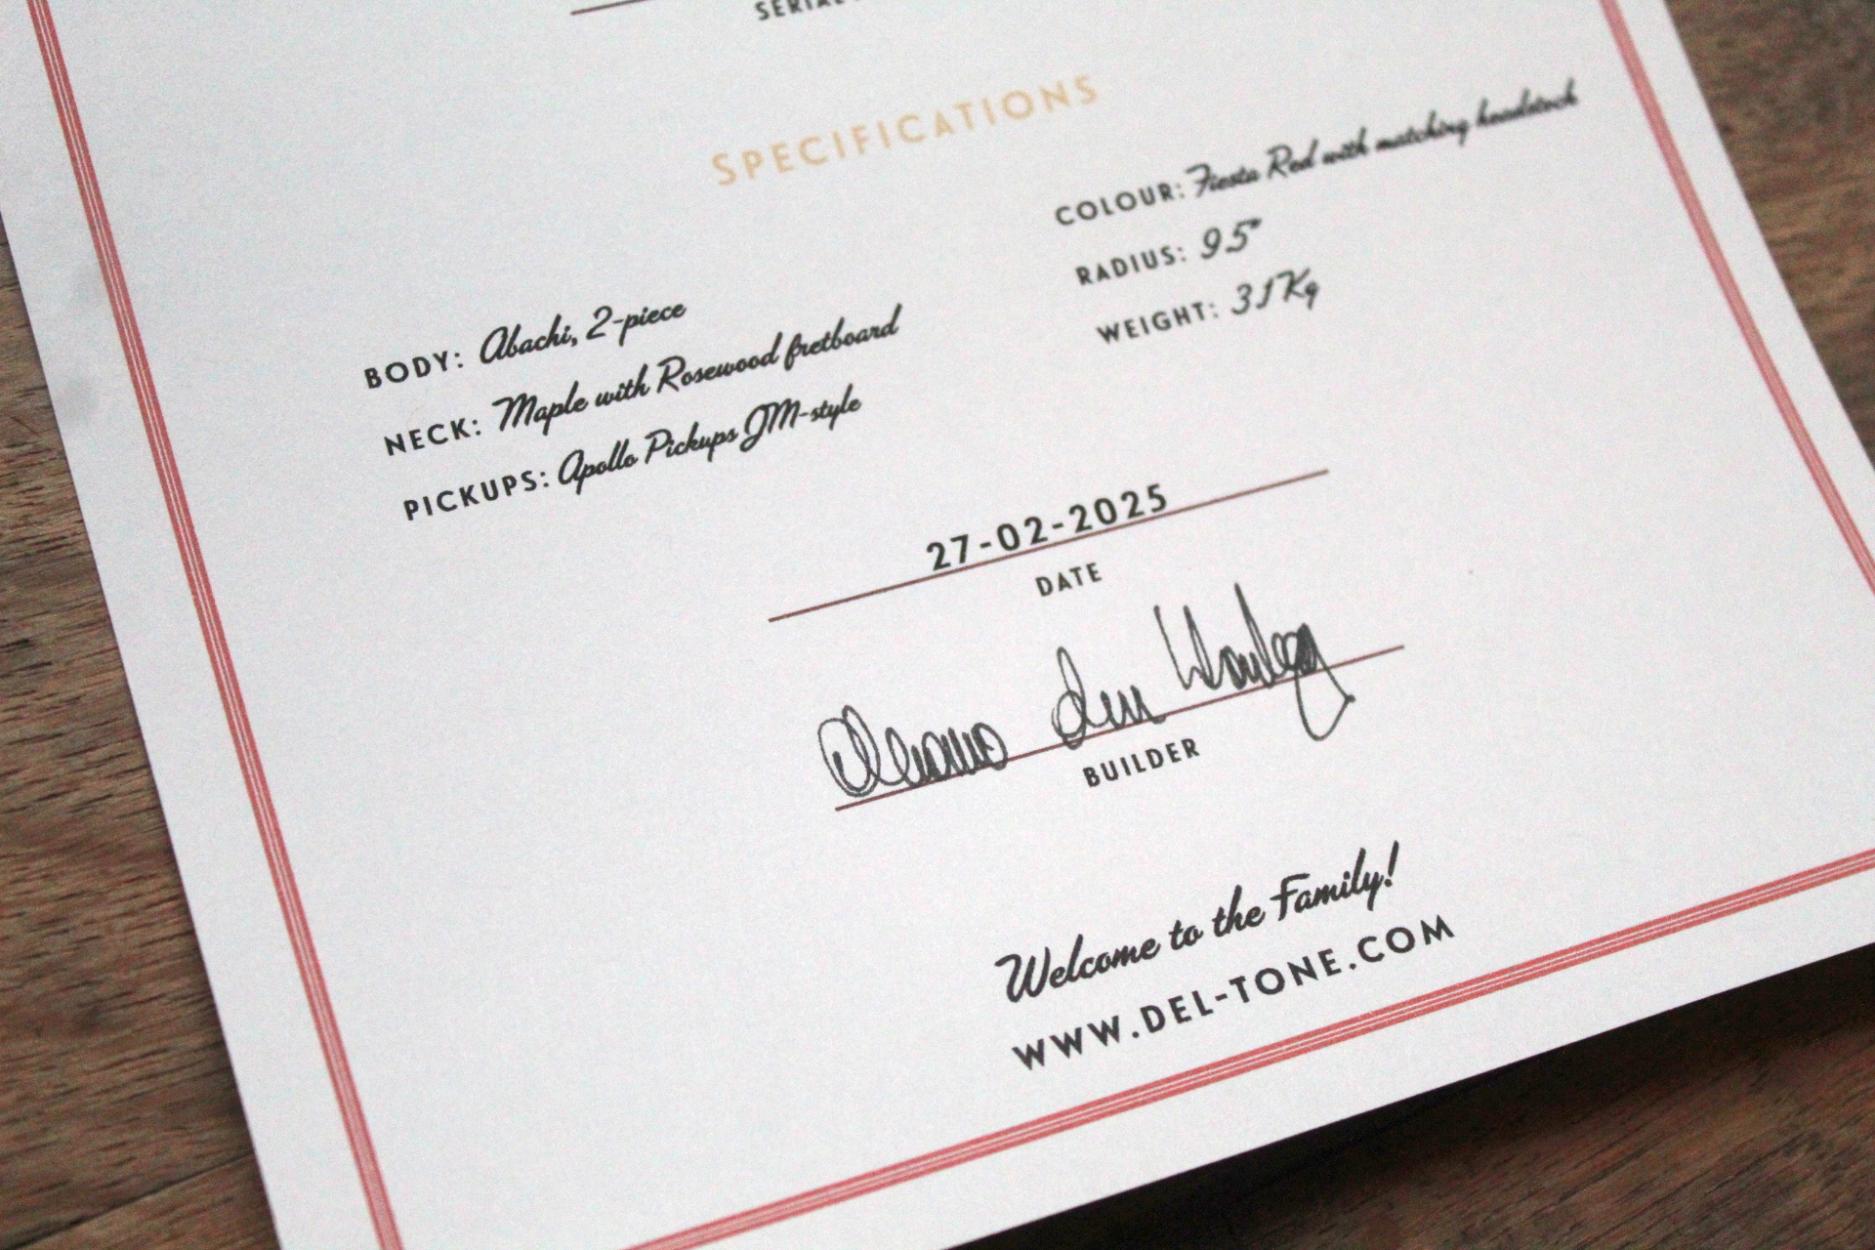 SERIAL
SPECIFICATIONS
BODY: Abachi, 2-piece
NECK: Maple with Rosewood fretboard
PICKUPS: Apollo Pickups JM-style
COLOUR: Fiesta Red with matching headstock
RADIUS: 9.5"
WEIGHT: 3.1 Kg
27-02-2025
DATE
BUILDER
Welcome to the Family!
WWW.DEL-TONE.COM